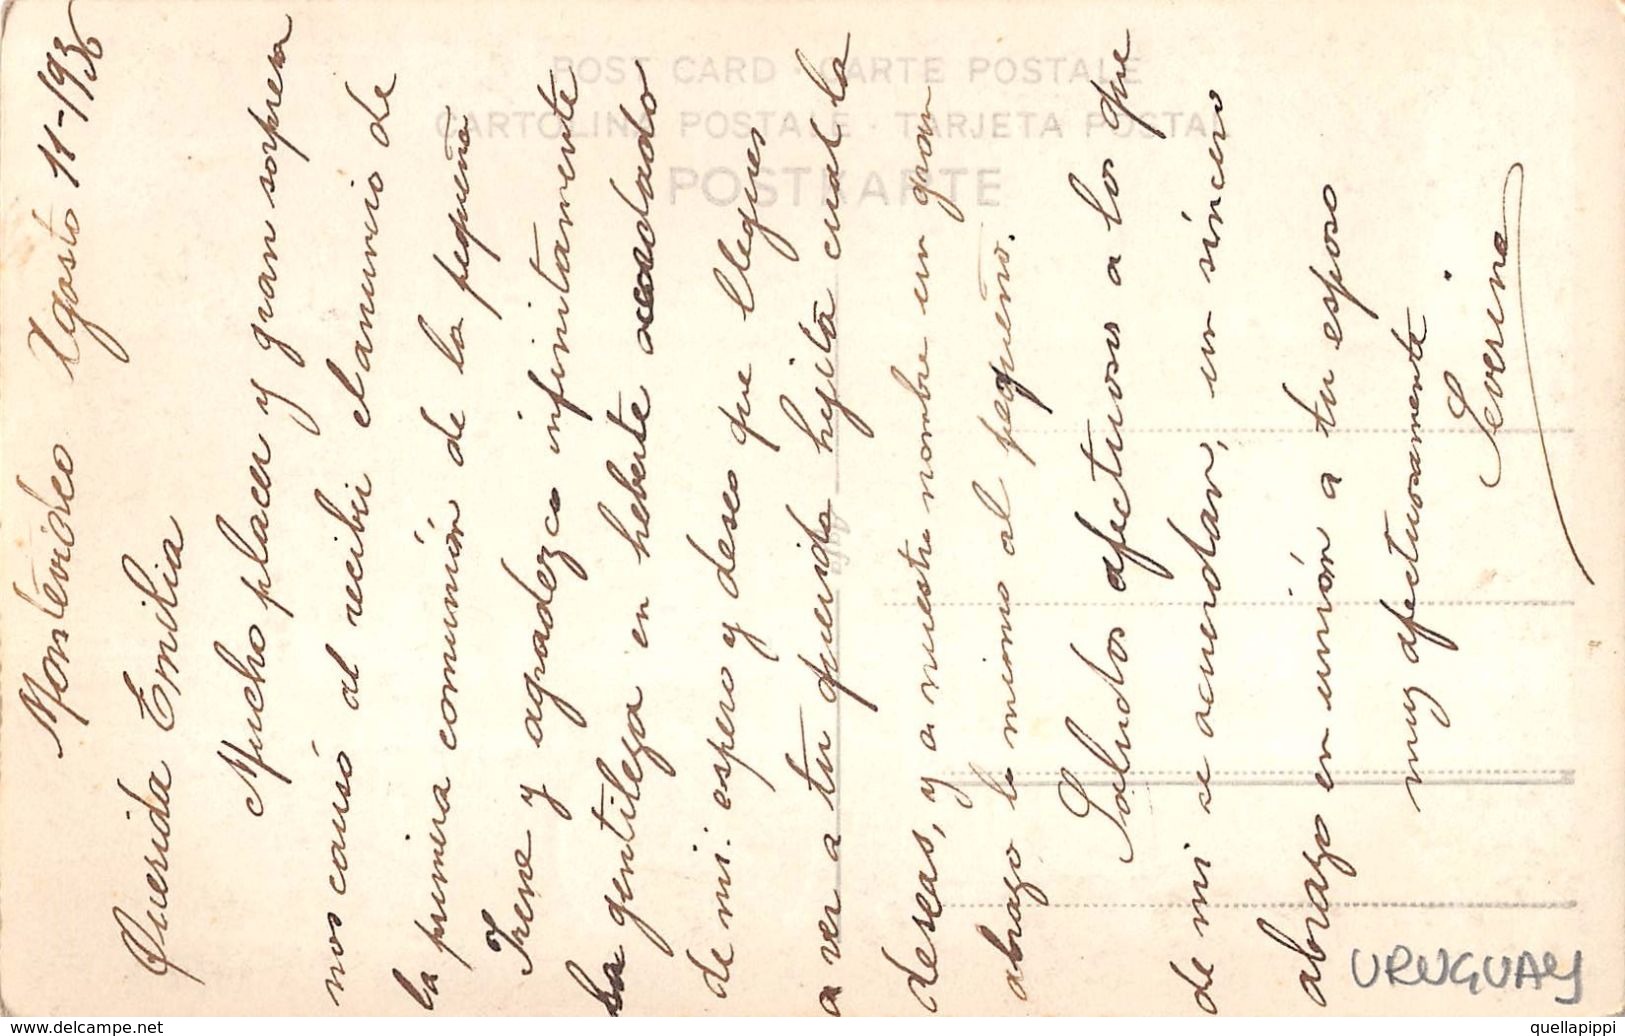 Montevideo Agosto 11-1936
Querida Emilia
Mucho placer y gran sopresa
nos causó al recibir el anuncio de
la primera comunión de la pequeña
Irene y agradezco infinitamente
la gentileza en heberte acordado
de mi. espero y deseo que llegues
a ver a tu querida hijita cual la
deseas, y a nuestro nombre un gran
abrazo lo mismo al pequeño.
Saludos afectuosos a los que
de mi se acuerdan, un sincero
abrazo en unión a tu esposo
muy afectuosamente
Severina
URUGUAY
POST CARD · CARTE POSTALE
CARTOLINA POSTALE · TARJETA POSTAL
POSTKARTE
www.delcampe.net
quellapippi